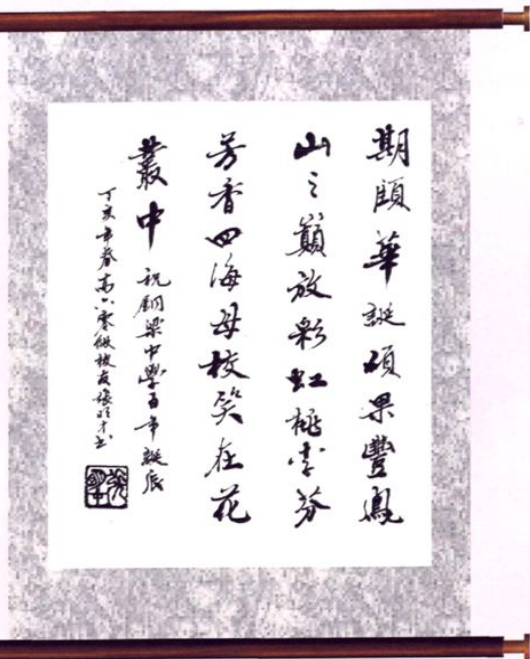 期頤華誕碩果豐鳳
山之巔放彩虹桃李芬
芳香四海母校笑在花
叢中
祝銅梁中學百年誕辰
丁亥年春高六零級校友張明才書